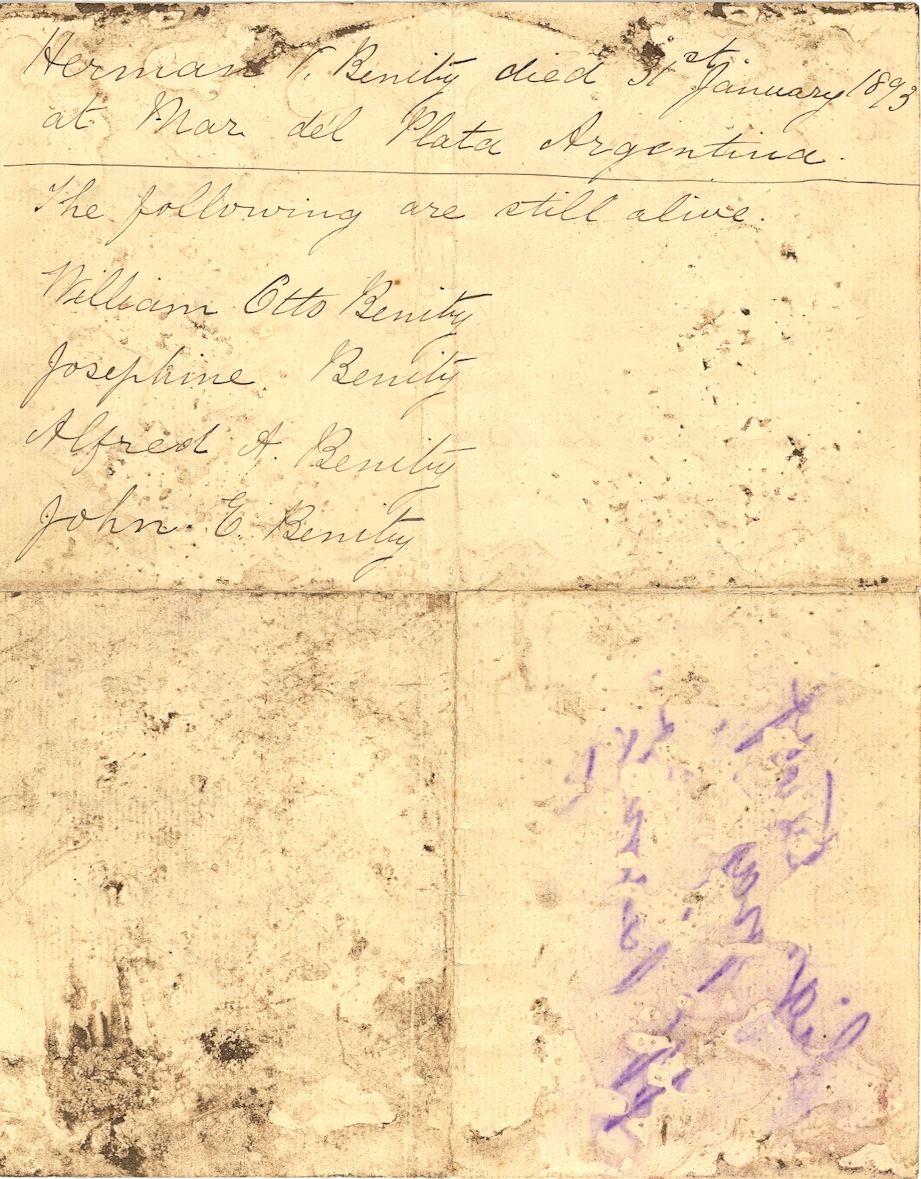 Herman V. Benity died 31st January 1893
at Mar del Plata Argentina.
The following are still alive.
William Otto Benity
Josephine Benity
Alfred A. Benity
John E. Benity